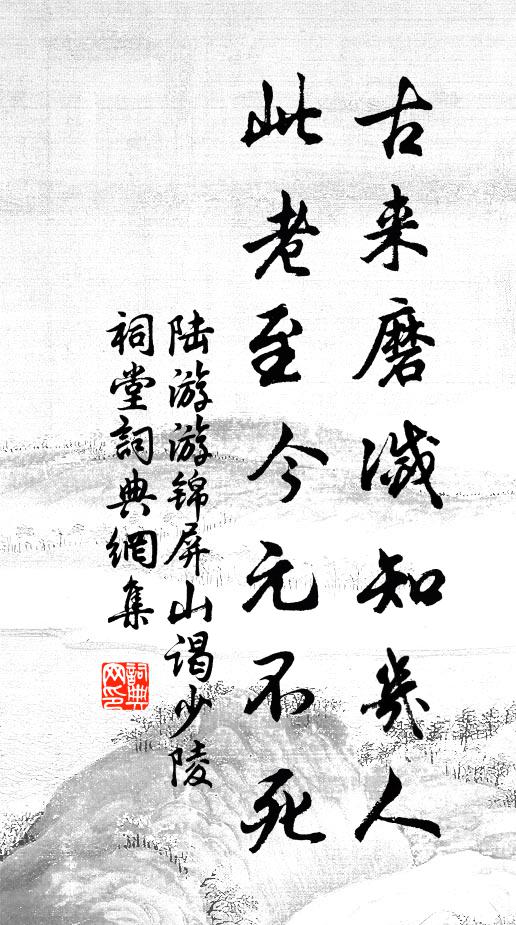 古来磨灭知几人
此老至今元不死
陆游游锦屏山谒少陵
祠堂詞典網集
詞典网印